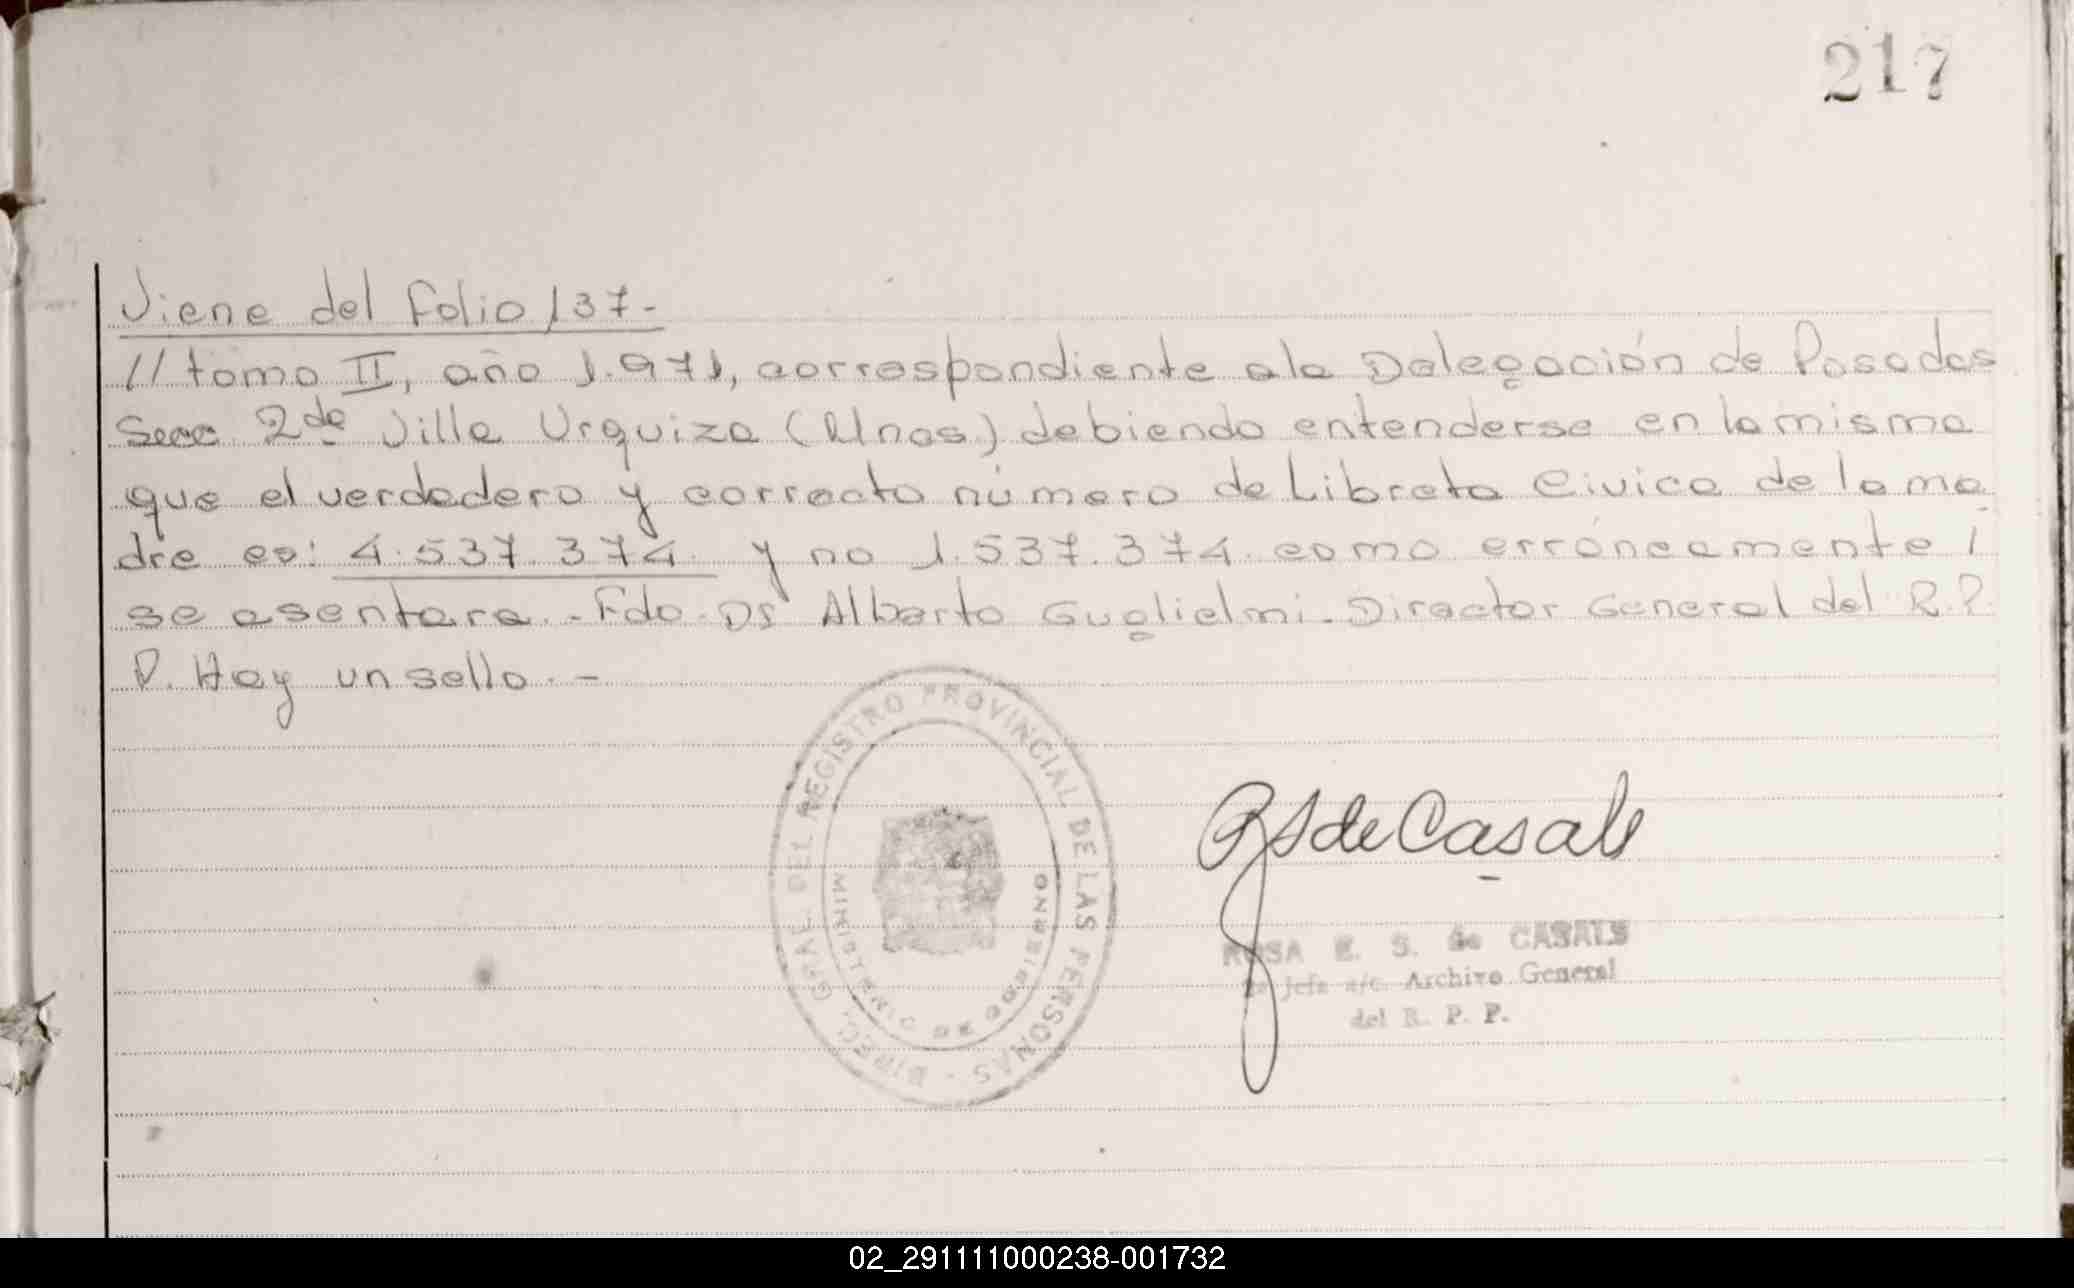 217
Viene del folio 137-
// tomo II, año 1.971, correspondiente a la Delegación de Posadas
Secc 2da Villa Urquiza (Mnes) debiendo entenderse en la misma
que el verdadero y correcto número de Libreta Civica de la ma
dre es: 4.537.374. y no 1.537.374. como erróneamente
se asentara.-Fdo. Dr Alberto Guglielmi-Director General del R.P.
P. Hay un sello.-
DIREC. GRAL. DEL REGISTRO PROVINCIAL DE LAS PERSONAS -
MINISTERIO DE GOBIERNO
de Casals
ROSA E. S. de CASALS
Jefe a/c. Archivo General
del R. P. P.
02_291111000238-001732